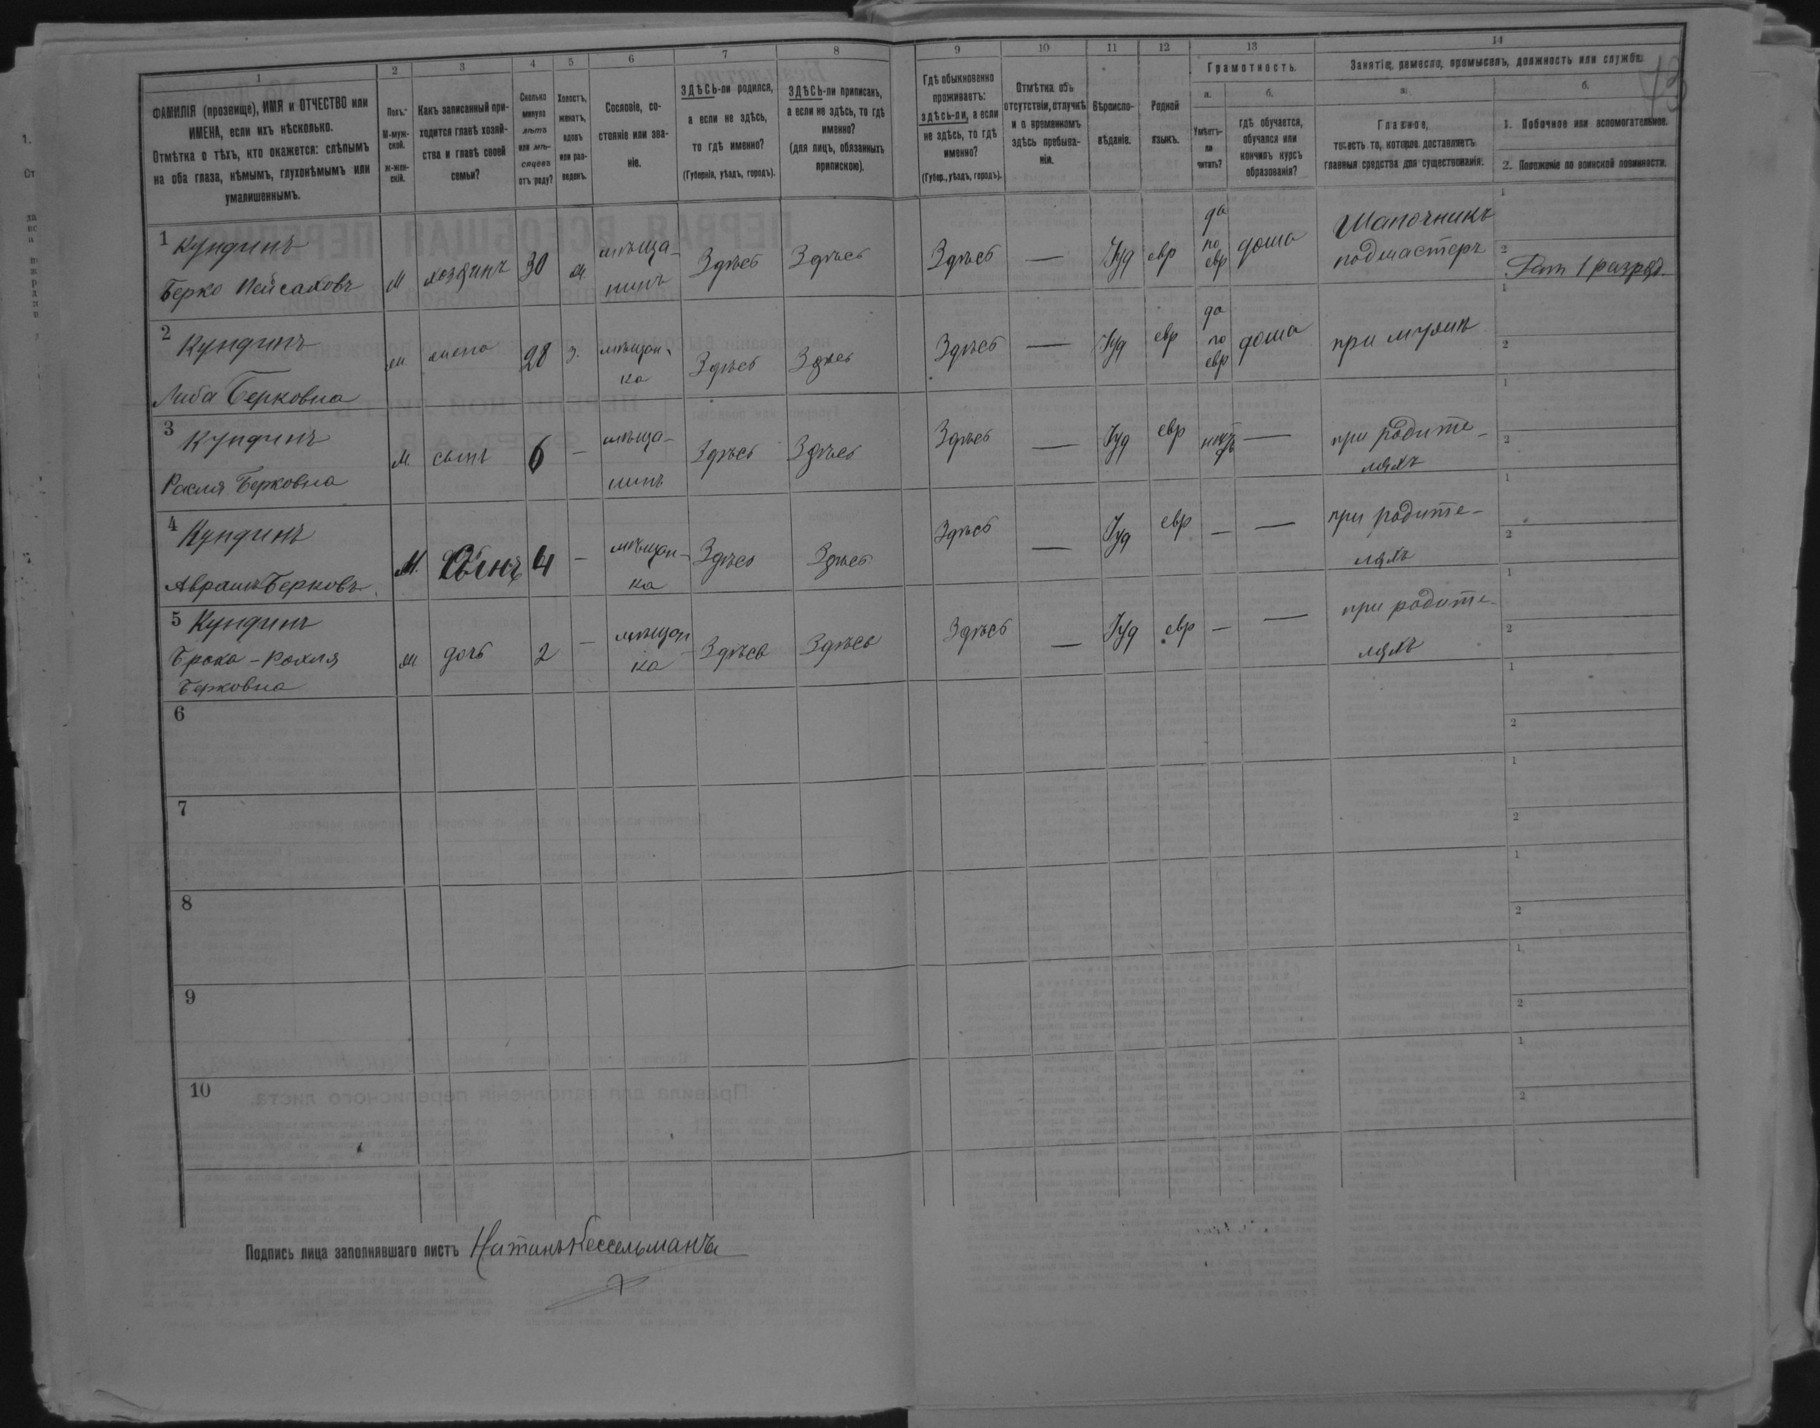 1
ФАМИЛІЯ (прозвище), ИМЯ и ОТЧЕСТВО или
ИМЕНА, если ихъ нѣсколько.
Отмѣтка о тѣхъ, кто окажется: слѣпымъ
на оба глаза, нѣмымъ, глухонѣмымъ или
умалишеннымъ.
2
Полъ:
М-муж-
ской.
Ж-жен-
скій.
3
Какъ записанный при-
ходится главѣ хозяй-
ства и главѣ своей
семьи?
4
Сколько
минуло
лѣтъ
или мѣ-
сяцевъ
отъ роду?
5
Холостъ,
женатъ,
вдовъ
или раз-
веденъ.
6
Сословіе, со-
стояніе или зва-
ніе.
7
ЗДѢСЬ-ли родился,
а если не здѣсь,
то гдѣ именно?
(Губернія, уѣздъ, городъ).
8
ЗДѢСЬ-ли приписанъ,
а если не здѣсь, то гдѣ
именно?
(для лицъ, обязанныхъ
припискою).
9
Гдѣ обыкновенно
проживаетъ:
здѣсь-ли, а если
не здѣсь, то гдѣ
именно?
(Губер., уѣздъ, городъ).
10
Отмѣтка объ
отсутствіи, отлучкѣ
и о временномъ
здѣсь пребыва-
ніи.
11
Вѣроиспо-
вѣданіе.
12
Родной
языкъ.
13
Грамотность.
а.
Умѣетъ-
ли
читать?
б.
гдѣ обучается,
обучался или
кончилъ курсъ
образованія?
14
Занятіе, ремесло, промыселъ, должность или служба.
а.
Главное,
то есть то, которое доставляетъ
главныя средства для существованія.
б.
1. Побочное или вспомогательное.
2. Положеніе по воинской повинности.
1 Кундинъ
Берко Пейсаховъ
М хозяинъ 30 ж. мѣща-
нинъ
Здѣсь Здѣсь Здѣсь — Іуд евр
да
по
евр
дома
Шапочникъ
подмастеръ
1
2 Рат 1 разряд
2 Кундинъ
Либа Берковна
м жена 28 з. мѣщан-
ка
Здѣсь Здѣсь Здѣсь — Іуд евр
да
по
евр
дома
при мужѣ
1
2
3 Кундинъ
Рохля Берковна
М. сынъ 6 — мѣща-
нинъ
Здѣсь Здѣсь Здѣсь — Іуд евр нѣтъ —
при родите-
ляхъ
1
2
4 Кундинъ
Абрамъ Берковъ
М. Сынъ 4 — мѣщан-
ка
Здѣсь Здѣсь Здѣсь — Іуд евр — —
при родите-
ляхъ
1
2
5 Кундинъ
Броха-Рохля
Берковна
м дочь 2 — мѣщан
ка
Здѣсь Здѣсь Здѣсь — Іуд евр — —
при родите-
ляхъ
1
2
6
1
2
7
1
2
8
1
2
9
1
2
10
1
2
Подпись лица заполнявшаго листъ Натанъ Кессельманъ